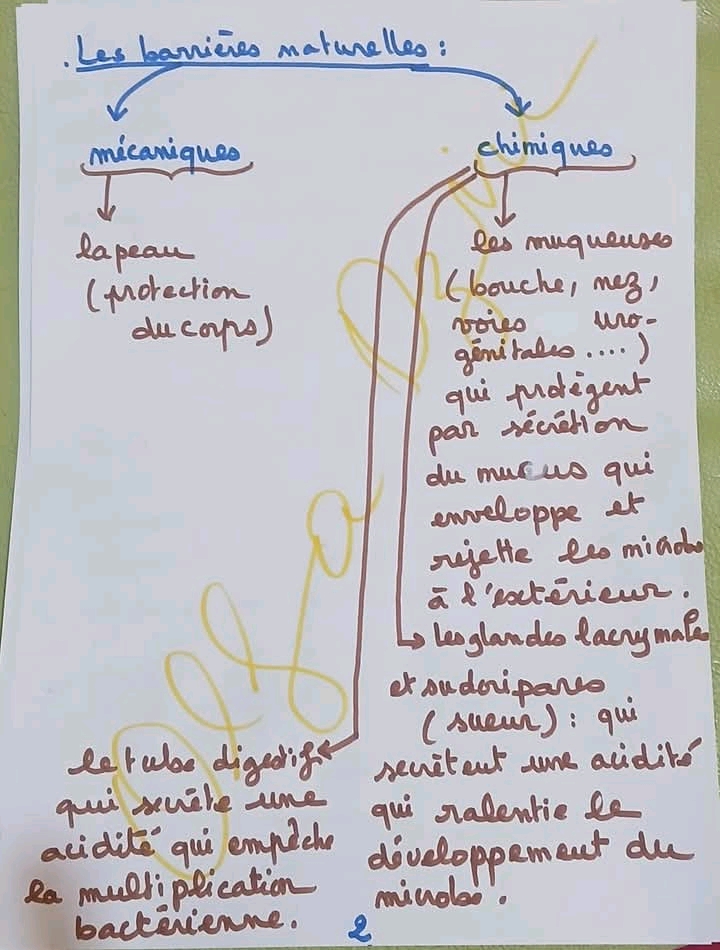 . Les barrières naturelles :
mécaniques
chimiques
la peau
(protection
du corps)
les muqueuses
(bouche, nez,
voies uro-
génitales ....)
qui protègent
par sécrétion
du mucus qui
enveloppe et
rejette les microbes
à l'extérieur.
les glandes lacrymale
et sudoripares
(sueur) : qui
secrètent une acidité
qui ralentie le
développement du
microbe.
le tube digestif
qui secrète une
acidité qui empêche
la multiplication
bactérienne.
2